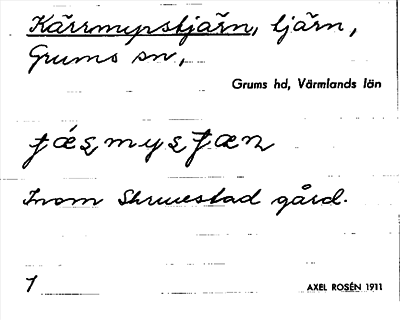 Kärrmyrstjärn, tjärn,
Grums sn,
Grums hd, Värmlands län
Inom Skruvestad gård.
1
AXEL ROSÉN 1911